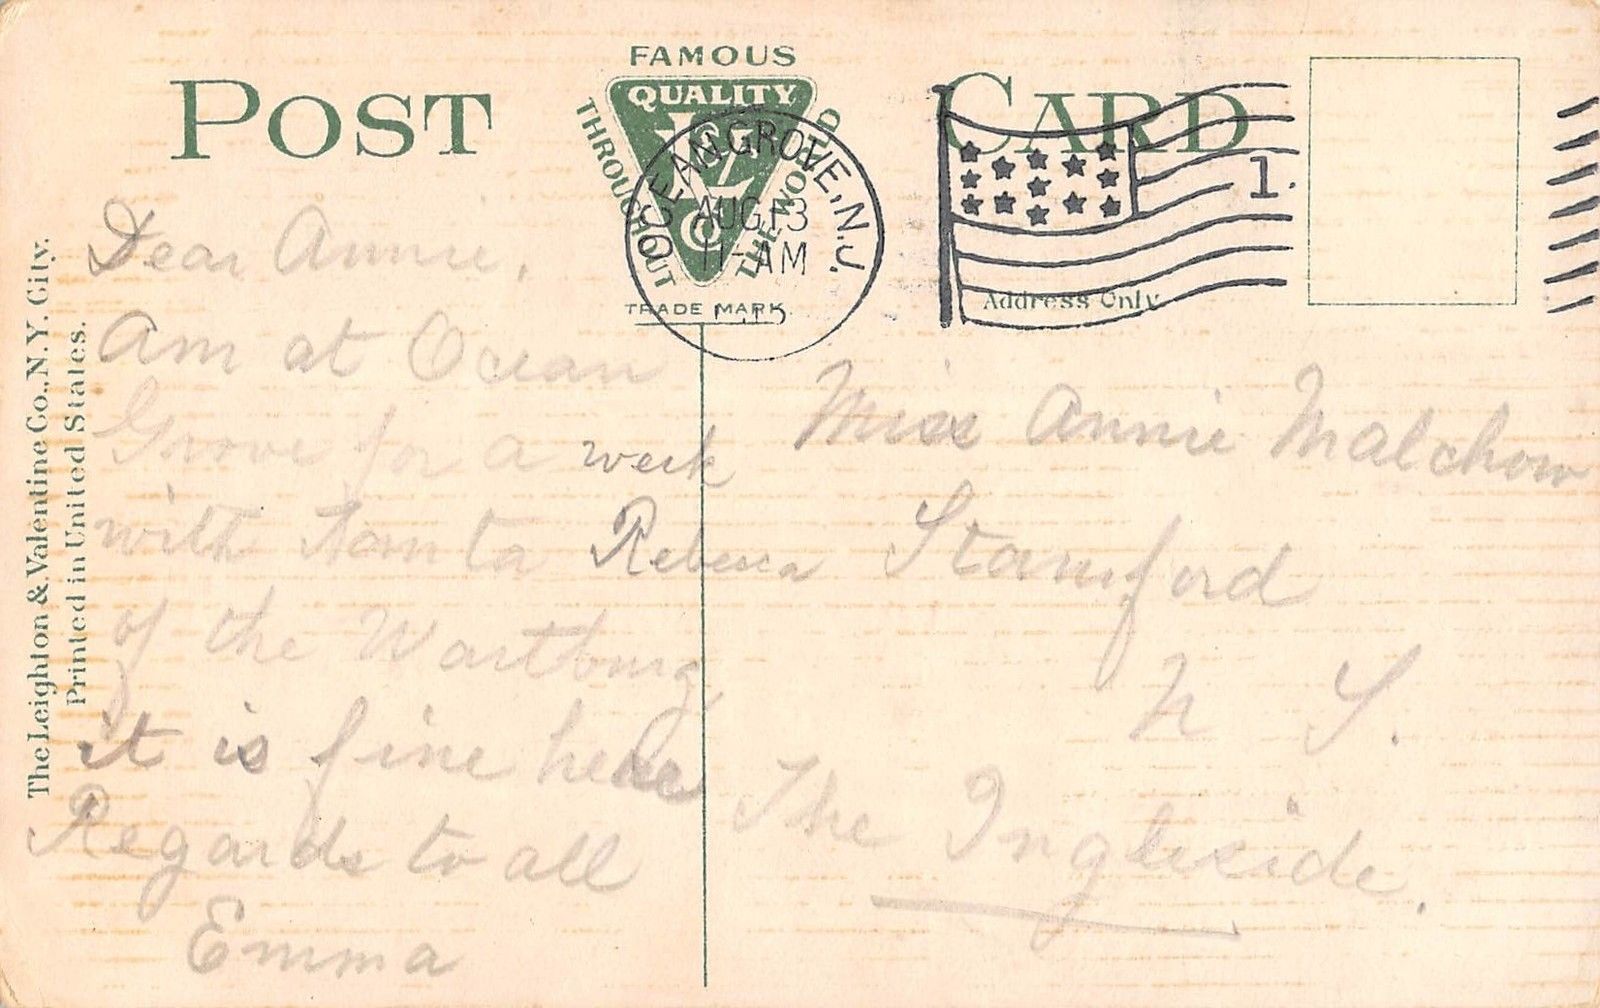 POST CARD
FAMOUS
QUALITY
THROUGHOUT THE WORLD
L & V Co
TRADE MARK
OCEAN GROVE, N.J.
AUG 13
11-AM
1
Address Only
The Leighton & Valentine Co., N.Y. City.
Printed in United States.
Dear Annie,
Am at Ocean
Grove for a week
with Tanta Rebecca
of the Wartburg,
it is fine here
Regards to all
Emma
Miss Annie Malchow
Stamford
N Y.
The Ingleside.